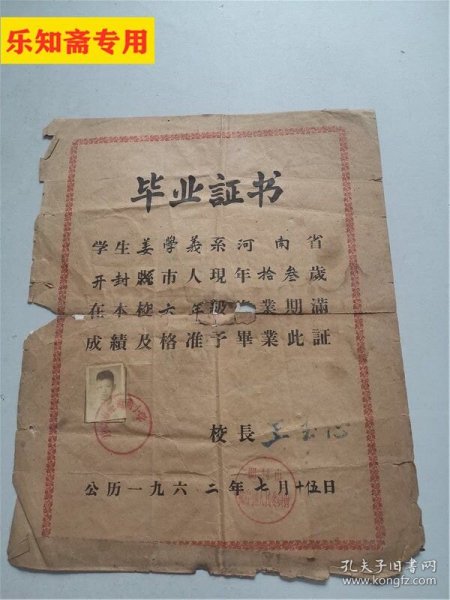 乐知斋专用
毕业証书
学生姜學義系河南省
开封縣市人現年拾叁歲
在本校六年級 業期滿
成績及格准予畢業此証
校長王
公历一九六二年七月十五日
孔夫子旧书网
www.kongfz.com